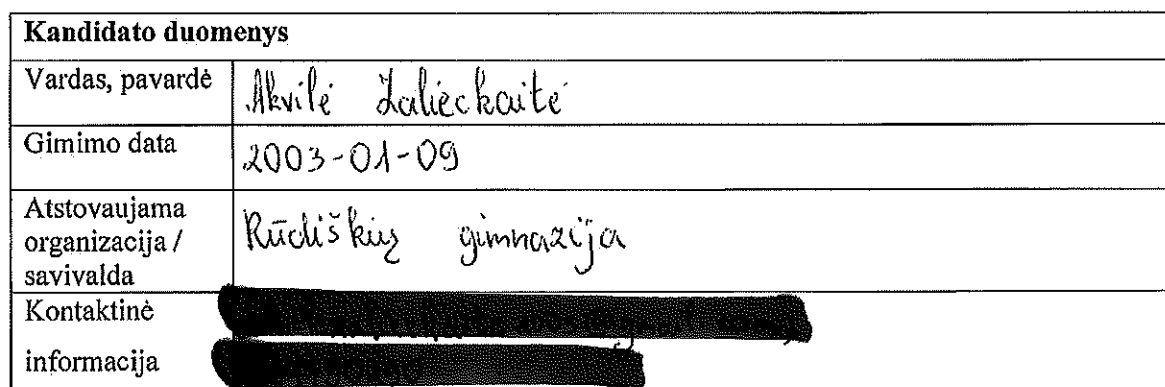 Kandidato duomenys
Vardas, pavardė Akvilė Zalieckaitė
Gimimo data 2003-01-09
Atstovaujama
organizacija /
savivalda
Rūdiškių gimnazija
Kontaktinė
informacija